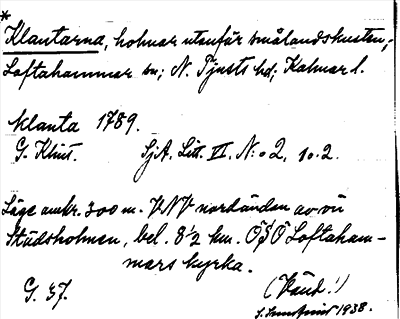 *
Klantarna, holmar utanför smålandskusten;
Loftahammar sn; N. Tjusts hd; Kalmar l.
Klanta 1789.
G. Klint. SjA. Litt. VI. N:o 2, 10.2.
Läge omkr. 300 m. VNV nordändan av ön
Städsholmen, bel. 8 1/2 km. OSO Loftaham-
mars kyrka.
G. 37. (Vänd!)
1938.